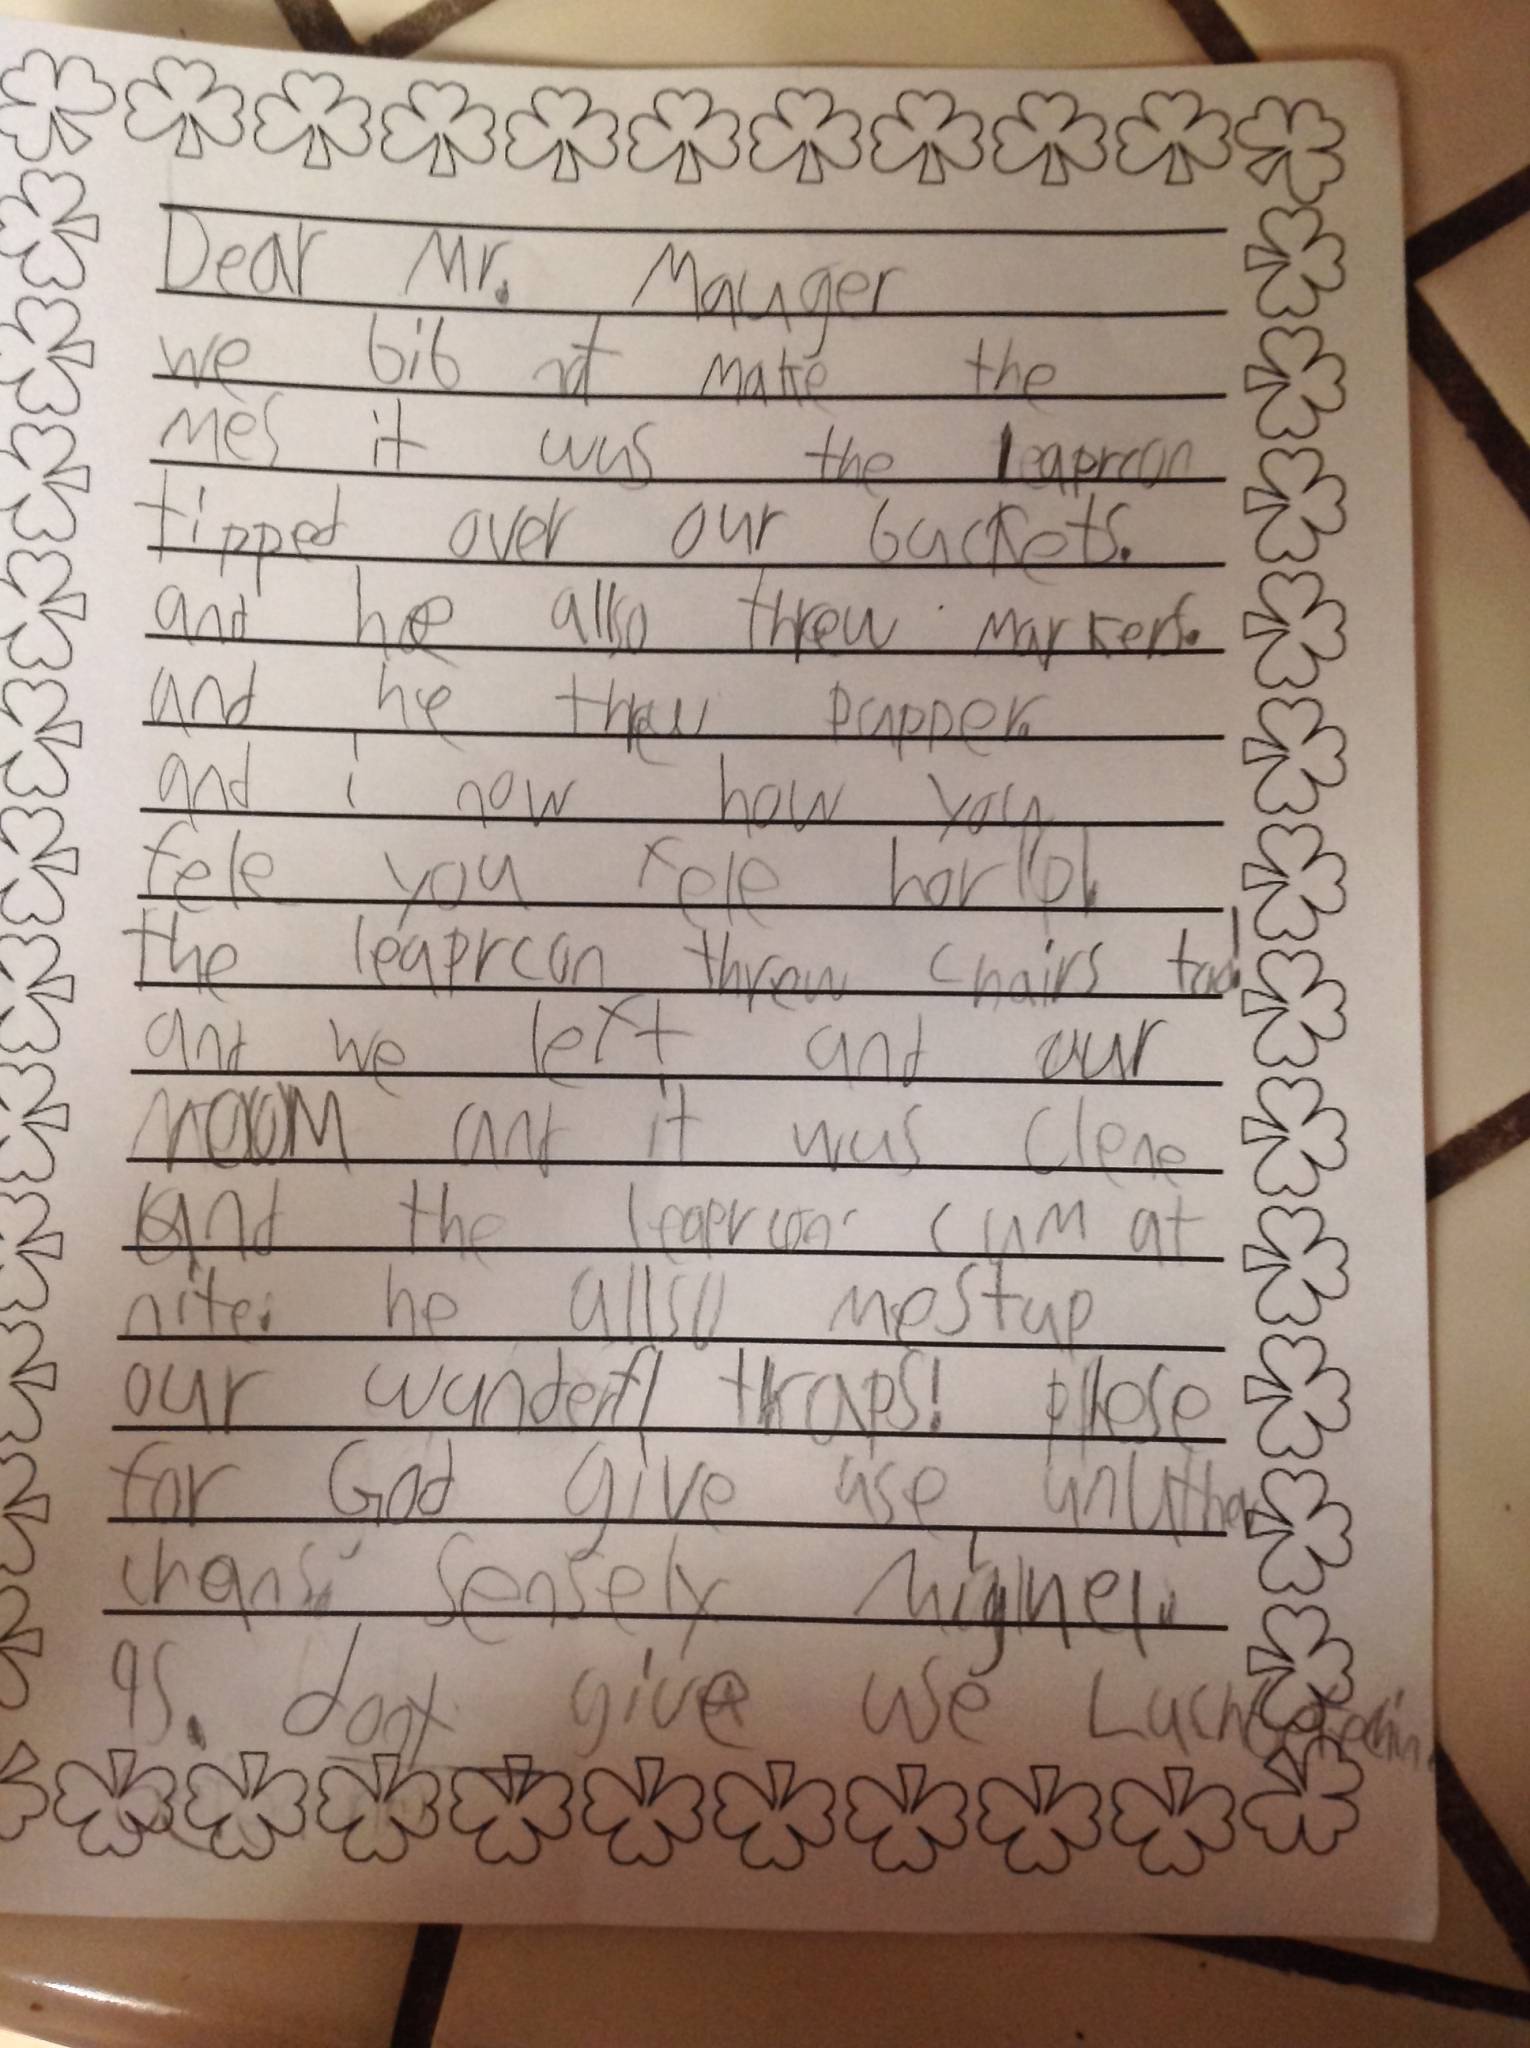 Dear Mr. Mauger
we bib not make the
mes it wus the leaprcon
tipped over our buckets.
and he allso threw markers.
and he threw papper.
and i now how you
fele you fele horlbl.
the leaprcon threw chairs too!
and we left and our
room and it wus clene
and the leaprcon cum at
nite. he allso mest up
our wunderfl traps! plese
for God give use unuther
chans. sensely Miginel.
qs. dont give use Luch